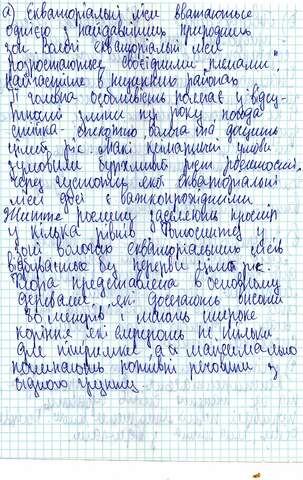 а) Екваторіальні ліси вважаються
однією з найдавніших природних
зон. Вологі екваторіальні ліси
розростаються своєрідними "плямами",
найчастіше в низинних районах
Її головна особливість полягає у відсу-
тності зміни пір року, погода
стійка - спекотно волога та дощить
цілий рік. Такі кліматичні умови
зумовили бурхливий ріст рослинності.
Через густоту лісу екваторіальні
ліси дуже є важкопрохідними
Життя рослин заселяють простір
у кілька рівнів
зоні вологих екваторіальних лісів
відбувається без перерви цілий рік.
Флора представлена в основному
деревами, які досягають висоти
80 метрів і мають широке
коріння, які служать не тільки
для підтримки, а й максимально
поглинають поживні речовини з
бідного ґрунту.